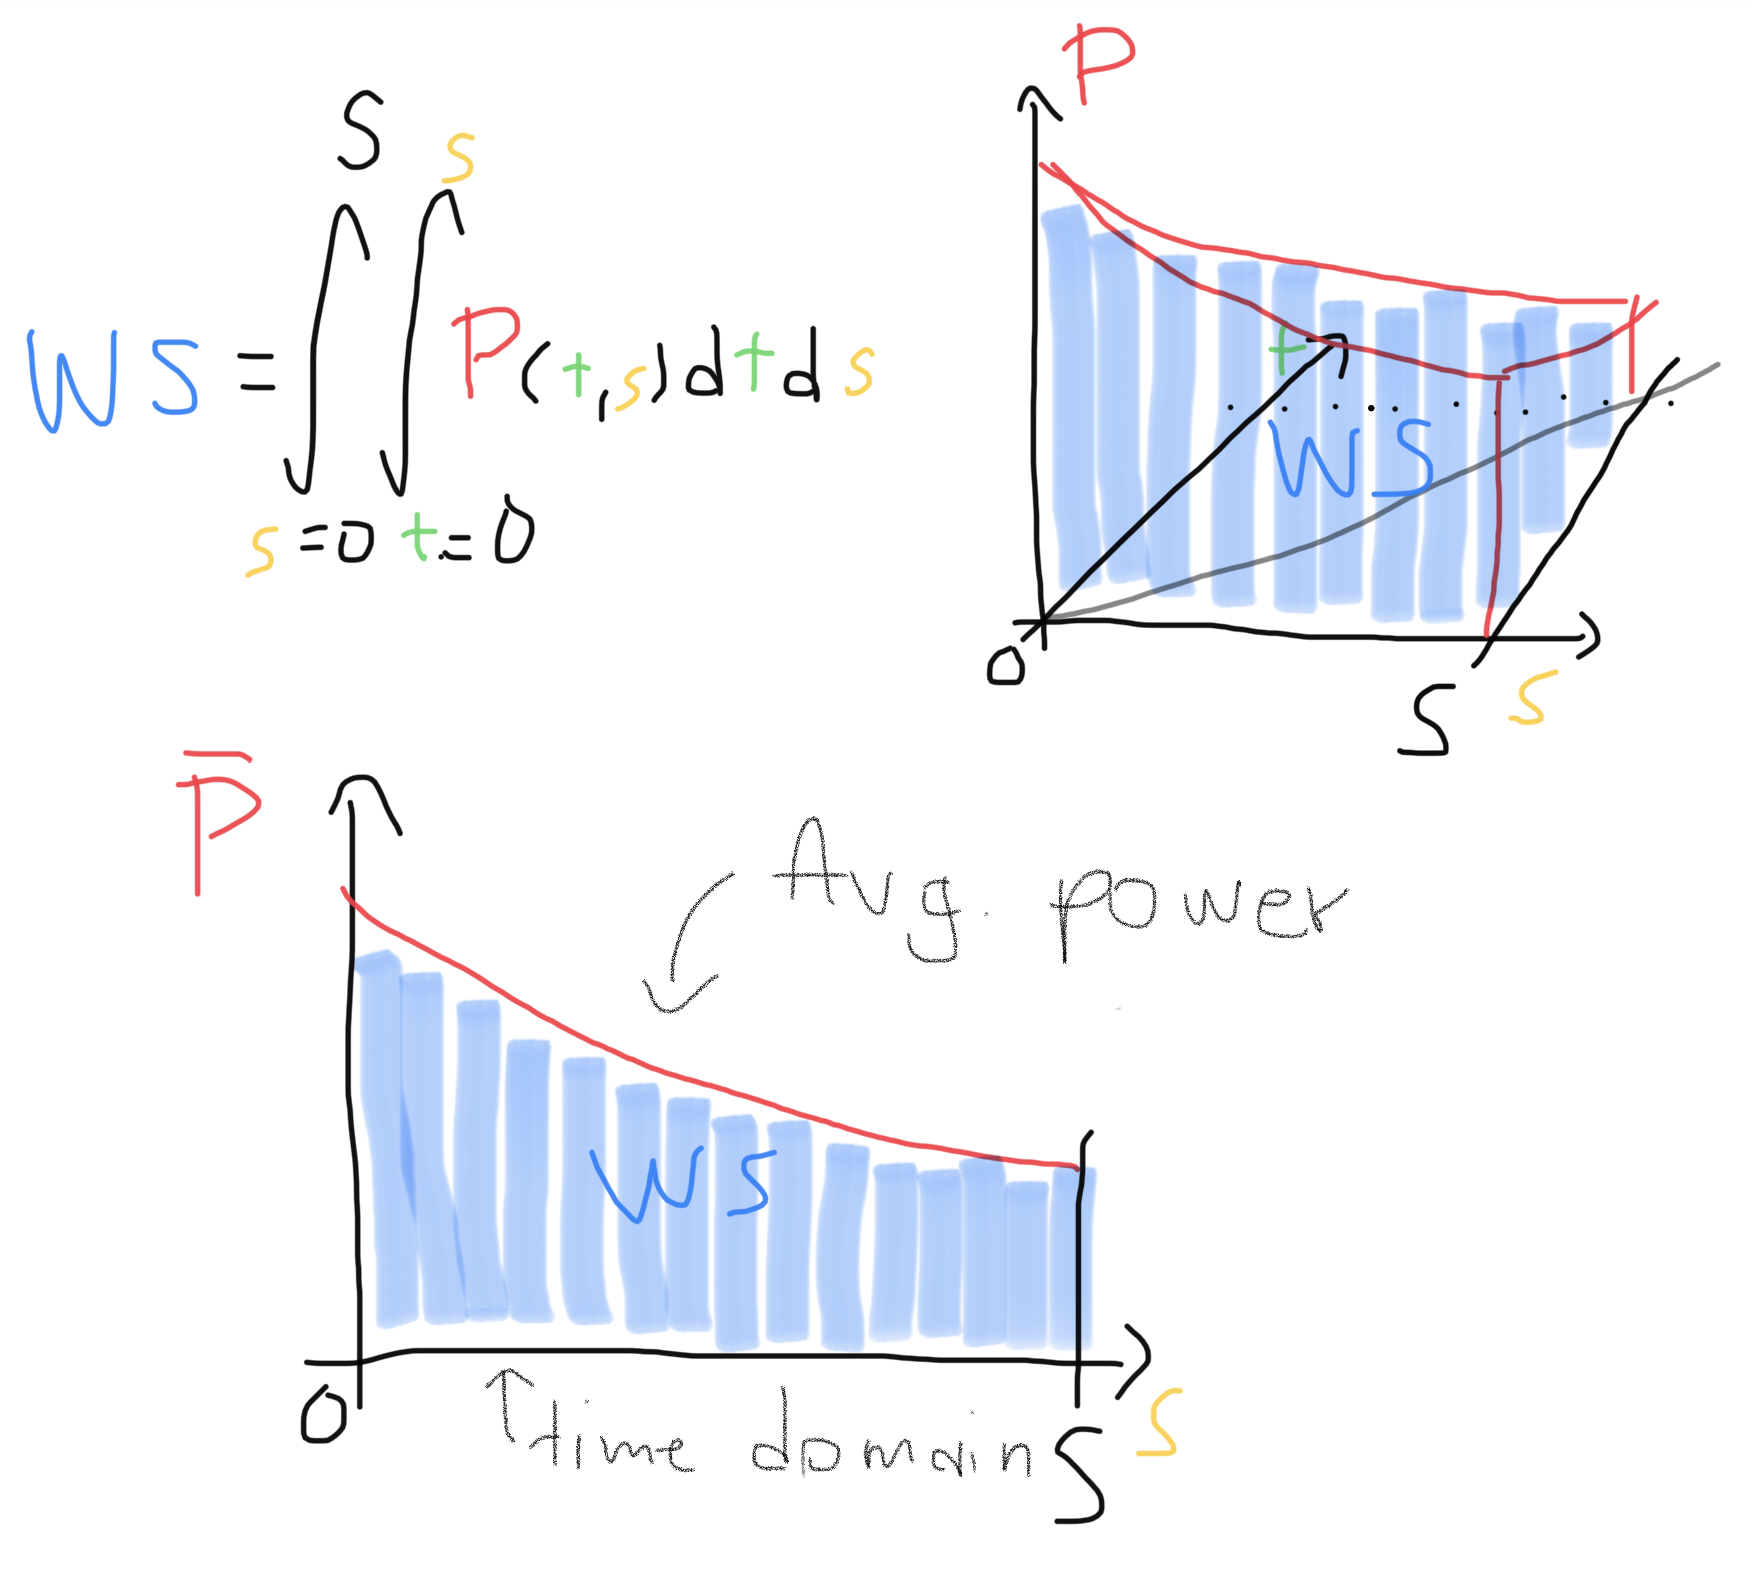 S s
WS = ∫∫ P(t,s)dtds
s=0 t=0
P
t
WS
0
S s
P̅
Avg. power
WS
0
time domain S s